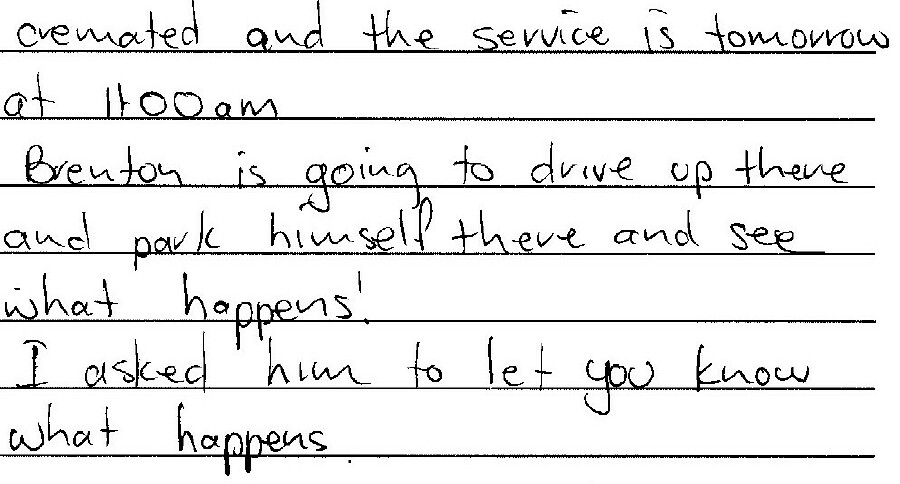 cremated and the service is tomorrow
at 11.00am
Brenton is going to drive up there
and park himself there and see
what happens!
I asked him to let you know
what happens.